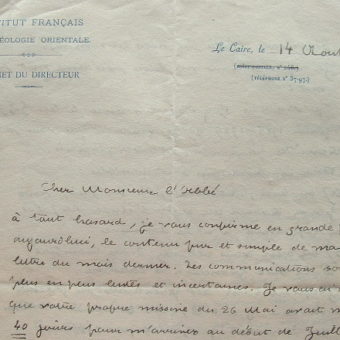 STITUT FRANÇAIS
ÉOLOGIE ORIENTALE
NET DU DIRECTEUR
Le Caire, le 14 Août
(TÉLÉPHONE N°
Cher Monsieur l'Abbé
à tout hasard, je vous confirme en grande
aujourd'hui, le contenu pur et simple de ma
lettre du mois dernier. Les communications so
plus en plus lentes et incertaines. Je vous
que votre propre missive du 26 Mai avait m
40 jours pour m'arriver au début de Juill